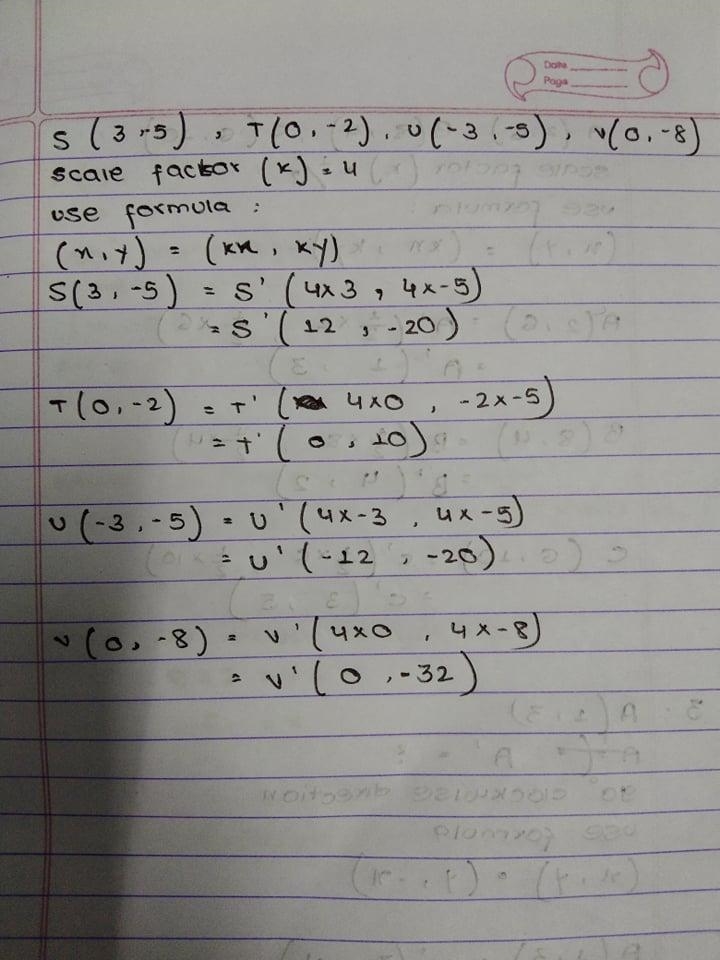 Date
Page
S (3,-5) , T(0,-2), U(-3,-5), V(0,-8)
scale factor (k) = 4
use formula :
(x,y) = (kx, ky)
S(3,-5) = S' (4x3, 4x-5)
= S' (12, -20)
T(0,-2) = T' (4x0, -2x-5)
= T' (0, 10)
U(-3,-5) = U' (4x-3, 4x-5)
= U' (-12, -20)
V(0,-8) = V' (4x0, 4x-8)
= V' (0,-32)